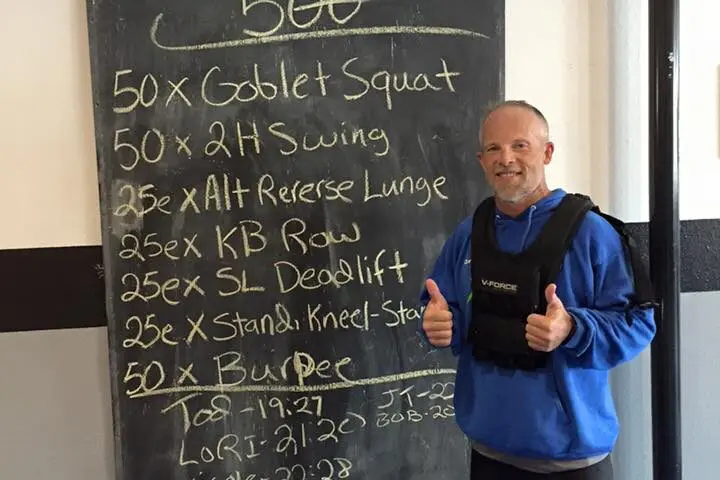 500
50 x Goblet Squat
50 x 2H Swing
25e x Alt Rererse Lunge
25e x KB Row
25e x SL Deadlift
25e x Stand, Kneel-Stan
50 x Burpee
19:27
LORI-21:20
JT-22
BOB-20
22:28
V-FORCE